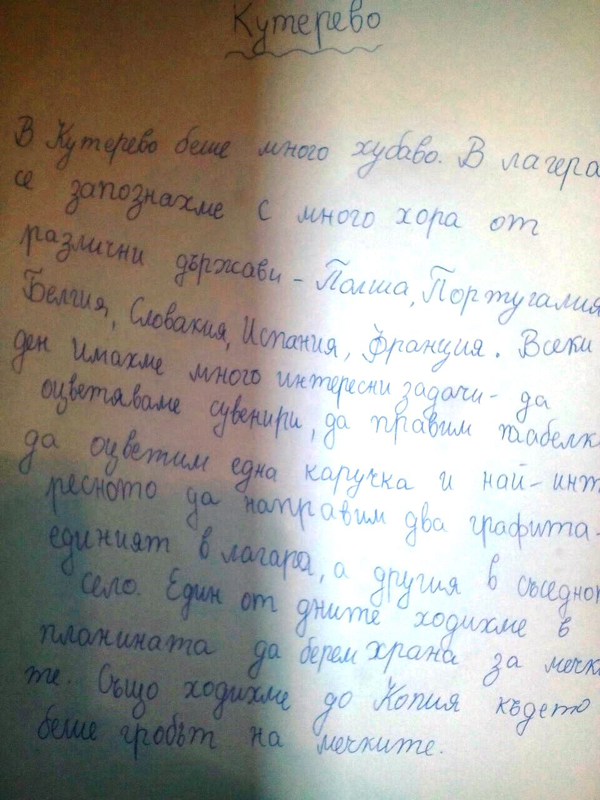 Кутерево
В Кутерево беше много хубаво. В лагера
се запознахме с много хора от
различни държави - Полша, Португалия,
Белгия, Словакия, Испания, Франция. Всеки
ден имахме много интересни задачи - да
оцветяваме сувенири, да правим табелк
да оцветим една каручка и най-инт
ресното да направим два графита -
единият в лагера, а другия в съседно
село. Един от дните ходихме в
планината да берем храна за мечк
те. Също ходихме до Копия където
беше гробът на мечките.